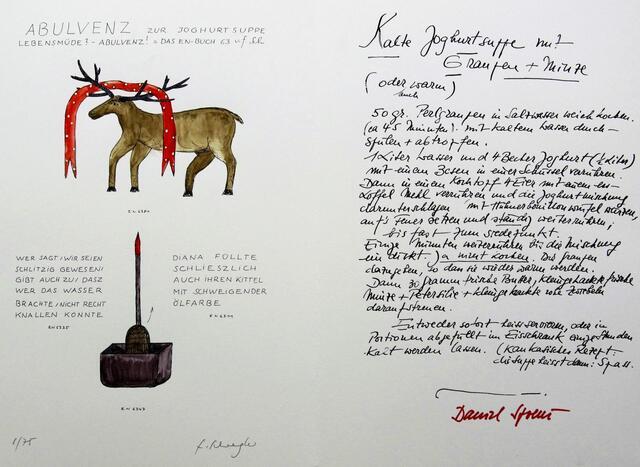 ABULVENZ ZUR JOGHURTSUPPE
LEBENSMÜDE?- ABULVENZ! = DAS EN-BUCH 63 uf
WER SAGT: WIR SEIEN
SCHLITZIG GEWESEN!
GIBT AUCH ZU! DASZ
WER DAS WASSER
BRACHTE/NICHT RECHT
KNALLEN KONNTE.
DIANA FÜLLTE
SCHLIESZLICH
AUCH IHREN KITTEL
MIT SCHWEIGENDER
ÖLFARBE.
1/75
Kalte Joghurtsuppe mit
Graupen + Minze
(oder warm)
auch
50 gr. Perlgraupen in Salzwasser weich kochen.
(ca 45 Minuten). mit kaltem Wasser durch-
spülen + abtropfen.
1 Liter Wasser und 4 Becher Joghurt (½ Liter)
mit einem Besen in einer Schüssel verrühren.
Dann in einem Kochtopf 4 Eier mit einem ess-
Löffel Mehl verrühren und die Joghurtmischung
darunterschlagen mit Hühnerbouillonwürfel würzen,
auf's Feuer setzen und ständig weiterrühren,
bis fast zum Siedepunkt.
Einige Minuten weiterrühren bis die Mischung
eindickt. Ja nicht kochen. Die Graupen
dazugeben, so dass sie wieder warm werden.
Dann 30 gramm frische Butter, kleingehackte frische
Minze + Petersilie + kleingehackte rote Zwiebeln
daraufstreuen.
Entweder sofort heiss servieren, oder in
Portionen abgefüllt im Eisschrank einige Stunden
kalt werden lassen. (Kaukasisches Rezept.
die Suppe heisst dann: Spass.
Daniel Spoerri